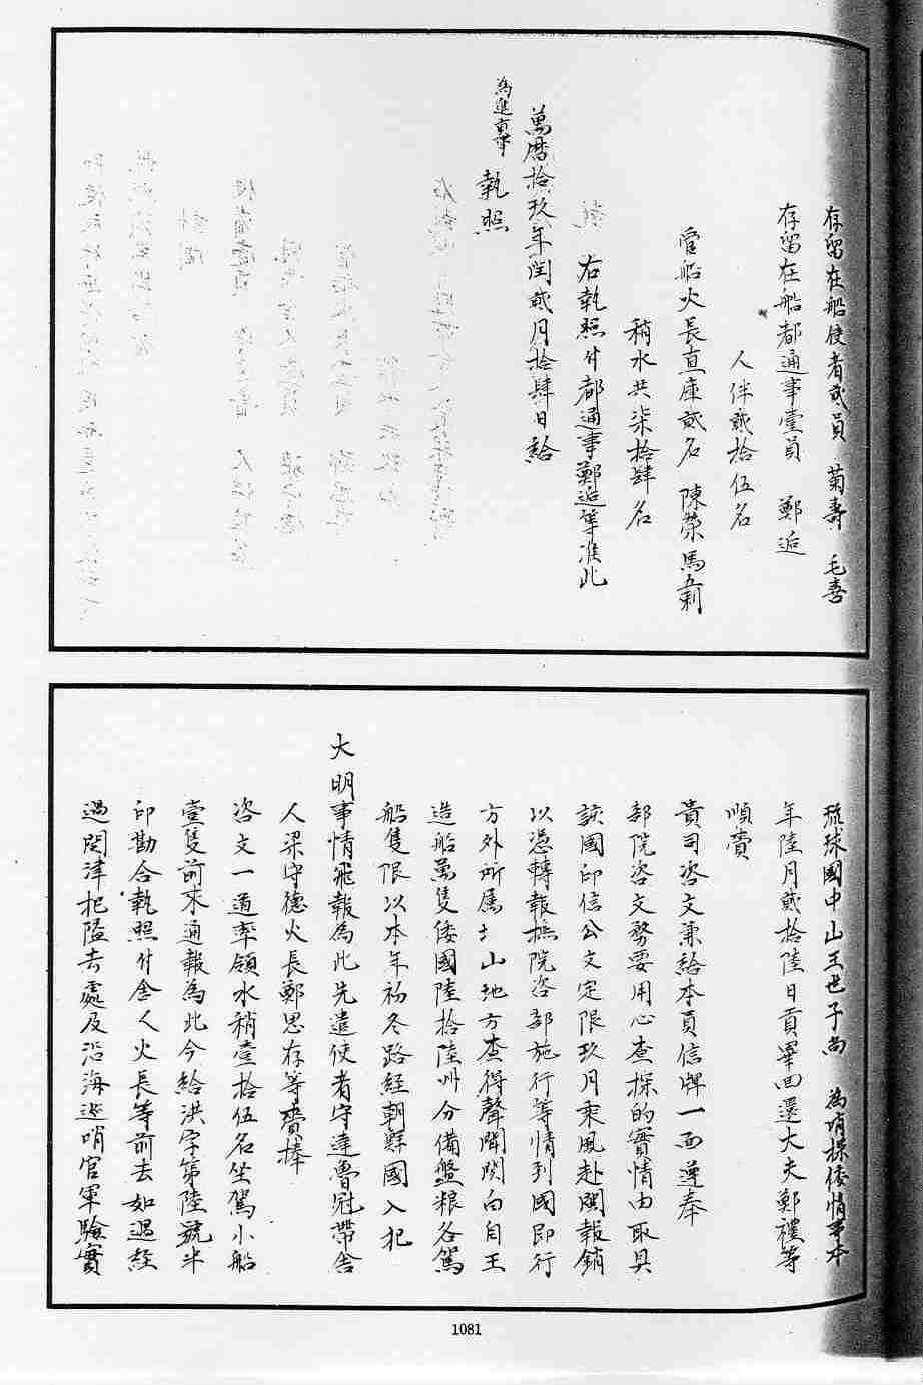 存留在船使者貳員 菊壽 毛喜
存留在船都通事壹員 鄭迵
人伴貳拾伍名
管船火長直庫貳名 陳榮 馬五剌
稍水共柒拾肆名
右執照付都通事鄭迵等准此
萬曆拾玖年閏貳月拾肆日給
為進貢事
執照
琉球國中山王世子尚 為哨探倭情事本
年陸月貳拾陸日貢畢回還大夫鄭禮等
順賫
貴司咨文兼給本員信牌一面遵奉
部院咨文務要用心查探的實情由取具
該國印信公文定限玖月乘風赴閩報銷
以憑轉報撫院咨部施行等情到國即行
方外所属土山地方查得聲聞関白自王
造船萬隻倭國陸拾陸州分備盤粮各駕
船隻限以本年初冬路經朝鮮國入犯
大明事情飛報為此先遣使者守達魯冠帶舎
人梁守德火長鄭思存等賫捧
咨文一道率領水稍壹拾伍名坐駕小船
壹隻前来通報為此今給洪字第陸號半
印勘合執照付舎人火長等前去如遇經
過関津把隘去處及沿海巡哨官軍驗實
1081